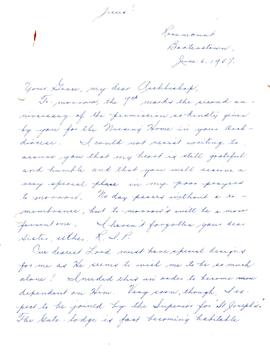 Jesus!
Rosemount
Booterstown,
June 6, 1957.
Your Grace, my dear Archbishop,
To-morrow the 7th marks the second an-
niversary of the permission so kindly given
by you for the Nursing Home in your Arch-
diocese. I could not resist writing to
assure you that my heart is still grateful
and humble and that you will receive a
very special place in my poor prayers
to-morrow. No day passes without a re-
membrance, but to-morrow's will be a more
fervent one. I haven't forgotten your dear
Sister, either, R.I.P.
Our dearest Lord must have special designs
for me as He seems to wish me to be so much
alone! I needed this in order to become more
dependent on Him. Very soon, though, I ex-
pect to be joined by the Superior for St Joseph's.
The Gate-lodge is fast becoming habitable